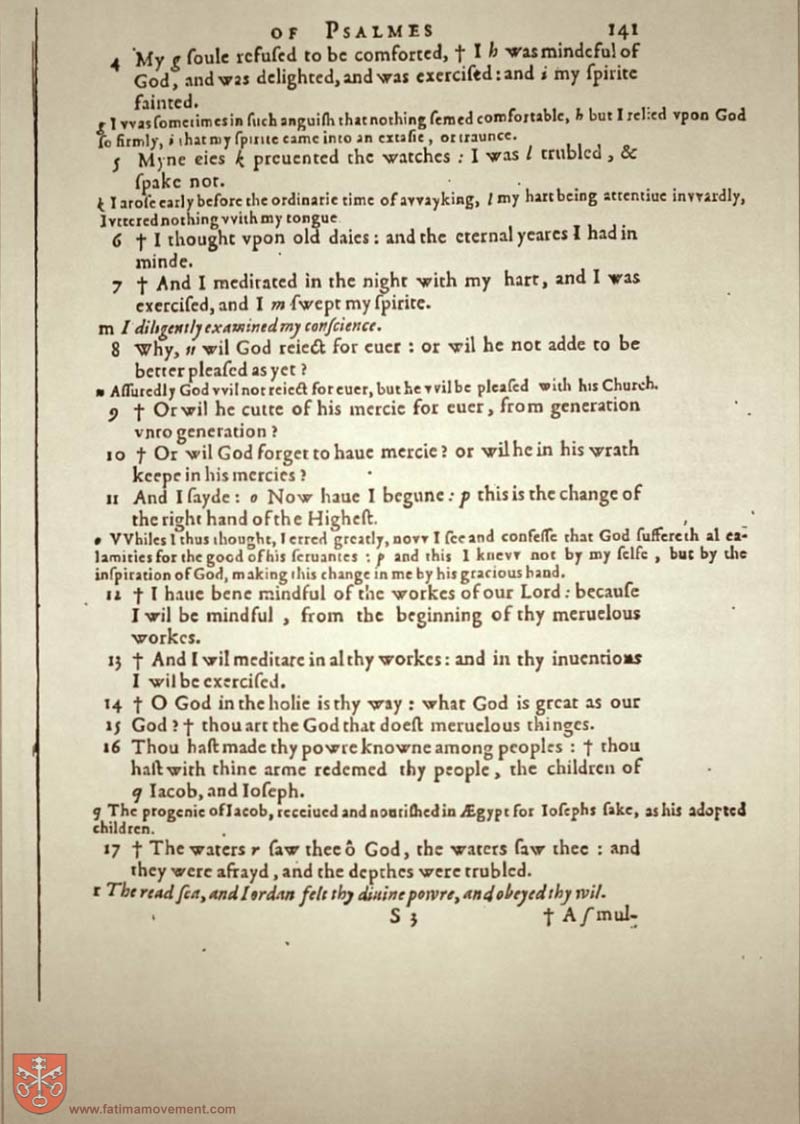 OF PSALMES 141
4 My g ſoule refuſed to be comforted, † I h was mindeful of
God, and was delighted, and was exerciſed: and i my ſpirite
fainted.
g I vvas ſometimes in ſuch anguiſh that nothing ſemed comfortable, h but I relied vpon God
ſo firmly, i that my ſpirite came into an extaſie, or traunce.
5 Myne eies k preuented the watches: I was l trubled, &
ſpake not.
k I aroſe early before the ordinarie time of avvayking, l my hart being attentiue invvardly,
I vttered nothing vvith my tongue
6 † I thought vpon old daies: and the eternal yeares I had in
minde.
7 † And I meditated in the night with my hart, and I was
exerciſed, and I m ſwept my ſpirite.
m I diligently examined my conſcience.
8 Why, n wil God reiect for euer: or wil he not adde to be
better pleaſed as yet?
n Aſſuredly God vvil not reiect for euer, but he vvil be pleaſed with his Church.
9 † Or wil he cutte of his mercie for euer, from generation
vnto generation?
10 † Or wil God forget to haue mercie? or wil he in his wrath
keepe in his mercies?
11 And I ſayde: o Now haue I begune: p this is the change of
the right hand of the Higheſt.
o VVhiles I thus thought, I erred greatly, novv I ſee and confeſſe that God ſuffereth al ca-
lamities for the good of his ſeruantes: p and this I knevv not by my ſelfe, but by the
inſpiration of God, making this change in me by his gracious hand.
12 † I haue bene mindful of the workes of our Lord: becauſe
I wil be mindful, from the beginning of thy meruelous
workes.
13 † And I wil meditate in al thy workes: and in thy inuentions
I wil be exerciſed.
14 † O God in the holie is thy way: what God is great as our
15 God? † thou art the God that doeſt meruelous thinges.
16 Thou haſt made thy powre knowne among peoples: † thou
haſt with thine arme redemed thy people, the children of
q Iacob, and Ioſeph.
q The progenie of Iacob, receiued and nouriſhed in Ægypt for Ioſephs ſake, as his adopted
children.
17 † The waters r ſaw thee ô God, the waters ſaw thee: and
they were afrayd, and the depthes were trubled.
r The read ſea, and Iordan felt thy diuine powre, and obeyed thy wil.
S 3 † A ſ mul-
www.fatimamovement.com